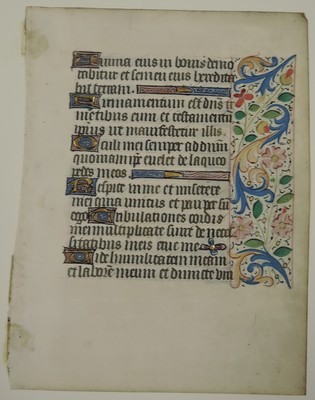 Anima eius in bonis demo
rabitur et semen eius heredita
bit terram.
Firmamentum est dns ti
mentibus eum et testamentum
ipsius ut manifestetur illis.
Oculi mei semper ad dnm
quoniam ipse evellet de laqueo
pedes meos.
Respice in me et miserere
mei quia unicus et pauper sum
ego Tribulationes cordis
mei multiplicate sunt de neces
sitatibus meis erue me
Vide humilitatem meam
et laborem meum et dimitte uni